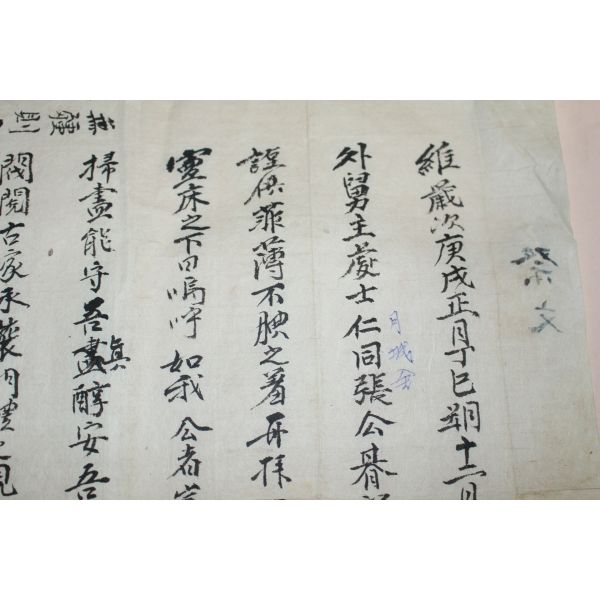 祭文
維歲次庚戌正月丁巳朔十二月
外舅主處士仁同張公朞
月城金
謹供菲薄不腆之著再拜
靈床之下曰嗚呼如我公者
掃盡能守吾眞盡醇安吾
閥閱古家承襲內
則